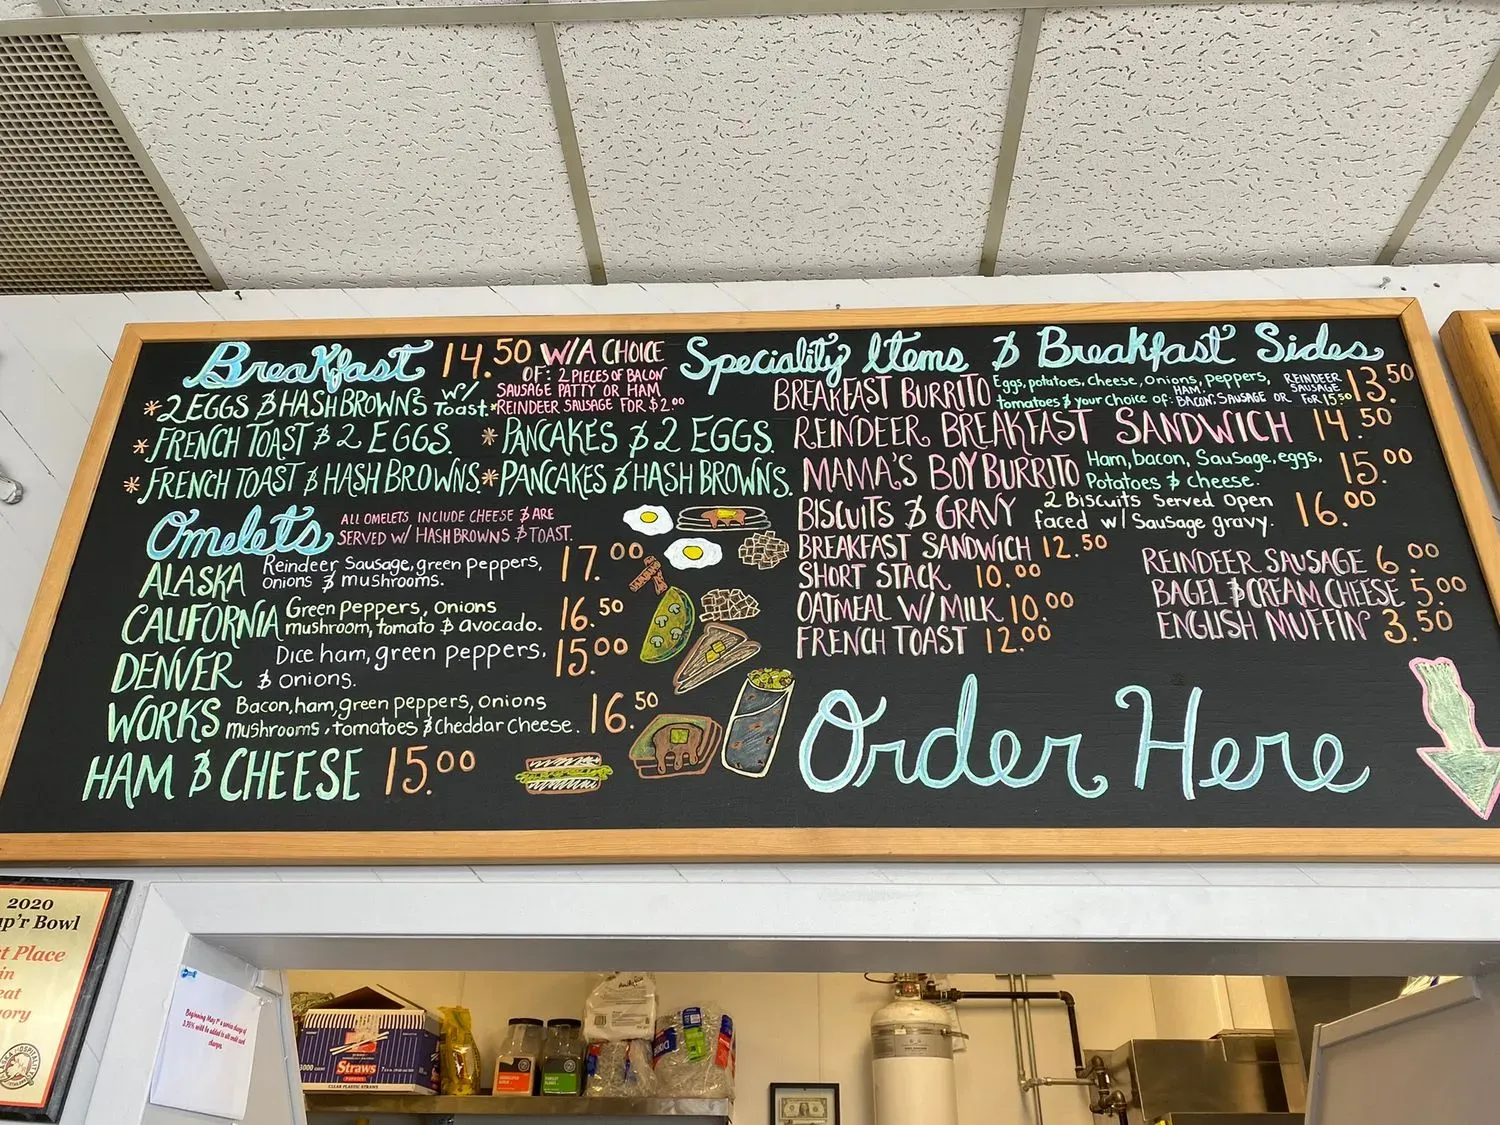 Breakfast 14.50 W/A CHOICE
OF: 2 PIECES OF BACON
SAUSAGE PATTY OR HAM
*REINDEER SAUSAGE FOR $2.00
*2 EGGS & HASHBROWNS W/ Toast.
*FRENCH TOAST & 2 EGGS. *PANCAKES & 2 EGGS.
*FRENCH TOAST & HASH BROWNS. *PANCAKES & HASH BROWNS.
Omelets ALL OMELETS INCLUDE CHEESE & ARE
SERVED W/ HASHBROWNS & TOAST.
ALASKA Reindeer Sausage, green peppers,
onions & mushrooms. 17.00
CALIFORNIA Green peppers, onions
mushroom, tomato & avocado. 16.50
DENVER Dice ham, green peppers,
& onions. 15.00
WORKS Bacon, ham, green peppers, onions
mushrooms, tomatoes & Cheddar Cheese. 16.50
HAM & CHEESE 15.00
Speciality Items & Breakfast Sides
BREAKFAST BURRITO Eggs, potatoes, cheese, onions, peppers,
tomatoes & your choice of: HAM, BACON, SAUSAGE OR REINDEER SAUSAGE FOR 15.50 13.50
REINDEER BREAKFAST SANDWICH 14.50
MAMA'S BOY BURRITO Ham, bacon, Sausage, eggs,
Potatoes & cheese. 15.00
BISCUITS & GRAVY 2 Biscuits Served Open
faced w/ Sausage gravy. 16.00
BREAKFAST SANDWICH 12.50
SHORT STACK 10.00
OATMEAL W/ MILK 10.00
FRENCH TOAST 12.00
REINDEER SAUSAGE 6.00
BAGEL & CREAM CHEESE 5.00
ENGLISH MUFFIN 3.50
Order Here
2020
Bowl
Place
in
Beginning May 1st a service charge of
3.95% will be added to all credit card
charges.
Straws
CLEAR PLASTIC STRAWS
Dixie